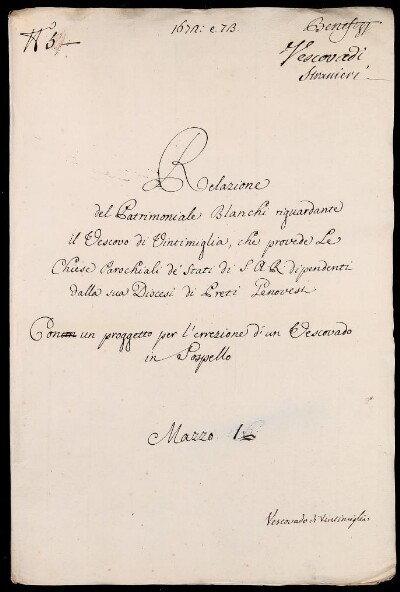 N.° 5
1672: e 73.
Benef.
Vescovadi
Stranieri
Relazione
del Patrimoniale Blanchi riguardante
il Vescovo di Vintimiglia, che provede Le
Chiese Parochiali de' Stati di S A R dipendenti
dalla sua Diocesi di Preti Genovesi
Con un proggetto per l'errezione d'un Vescovado
in Sospello
Mazzo 1.°
Vescovado di Vintimiglia